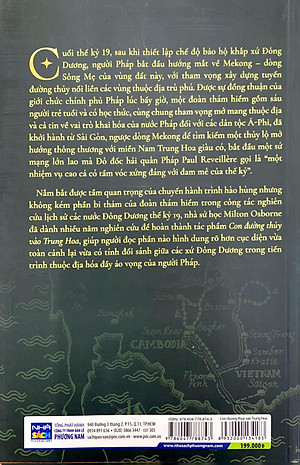 Cuối thế kỷ 19, sau khi thiết lập chế độ bảo hộ khắp xứ Đông
Dương, người Pháp bắt đầu hướng mắt về Mekong – dòng
Sông Mẹ của vùng đất này, với tham vọng xây dựng tuyến
đường thủy nối liền các vùng thuộc địa trù phú. Được sự đồng thuận của
giới chức chính phủ Pháp lúc bấy giờ, một đoàn thám hiểm gồm sáu
người trẻ tuổi và có học thức, cùng chung tham vọng mở mang thuộc địa
và cả tin về vai trò khai hóa của nước Pháp đối với các dân tộc Á-Phi, đã
khởi hành từ Sài Gòn, ngược dòng Mekong để tìm kiếm một thủy lộ mở
hướng thông thương với miền Nam Trung Hoa giàu có, bắt đầu một sứ
mạng lớn lao mà Đô đốc hải quân Pháp Paul Reveillère gọi là “một
nhiệm vụ cao cả có tầm vóc xứng đáng với đam mê của thế kỷ”.
Nắm bắt được tầm quan trọng của chuyến hành trình hào hùng nhưng
không kém phần bi thảm của đoàn thám hiểm trong công tác nghiên
cứu lịch sử các nước Đông Dương thế kỷ 19, nhà sử học Milton Osborne
đã dành nhiều năm nghiên cứu để hoàn thành tác phẩm Con đường thủy
vào Trung Hoa, giúp người đọc phần nào hình dung rõ hơn cục diện vừa
toàn cảnh lại vừa có tính đối sánh giữa các xứ Đông Dương trong tiến
trình thuộc địa hóa đầy ảo vọng của người Pháp.
Bangkok
Siem Reap
Angkor
CAMBODIA
Stung Treng
Phnom Penh
VIETNAM
Saigon
NHÀ SÁCH
PHƯƠNG NAM
TỔNG PHÁT HÀNH
CÔNG TY TNHH MTV BÁN LẺ
PHƯƠNG NAM
940 Đường 3 tháng 2, P.15, Q.11, TP.HCM
sachphuongnam@pnc.com.vn - www.pnc.com.vn
www.nhasachphuongnam.com
Con đường thủy vào Trung Hoa
8 932000 134183
199.000đ